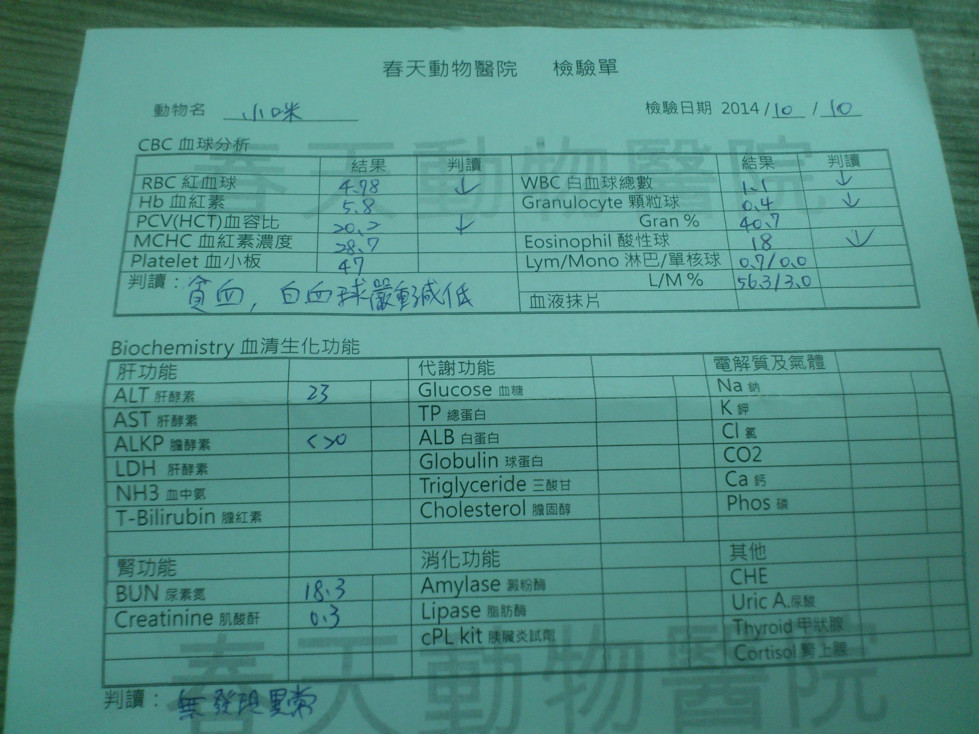 春天動物醫院 檢驗單
動物名 小咪 檢驗日期 2014/10/10
CBC 血球分析
結果 判讀 結果 判讀
RBC 紅血球 4.78 ↓ WBC 白血球總數 1.1 ↓
Hb 血紅素 5.8 Granulocyte 顆粒球 0.4 ↓
PCV(HCT)血容比 20.2 ↓ Gran % 40.7
MCHC 血紅素濃度 28.7 Eosinophil 酸性球 18 ↓
Platelet 血小板 47 Lym/Mono 淋巴/單核球 0.7/0.0
判讀：貧血，白血球嚴重減低 L/M % 56.3/3.0
血液抹片
Biochemistry 血清生化功能
肝功能 代謝功能 電解質及氣體
ALT 肝酵素 23 Glucose 血糖 Na 鈉
AST 肝酵素 TP 總蛋白 K 鉀
ALKP 膽酵素 <20 ALB 白蛋白 Cl 氯
LDH 肝酵素 Globulin 球蛋白 CO2
NH3 血中氨 Triglyceride 三酸甘 Ca 鈣
T-Bilirubin 膽紅素 Cholesterol 膽固醇 Phos 磷
腎功能 消化功能 其他
BUN 尿素氮 18.3 Amylase 澱粉酶 CHE
Creatinine 肌酸酐 0.3 Lipase 脂肪酶 Uric A.尿酸
cPL kit 胰臟炎試劑 Thyroid 甲狀腺
Cortisol 腎上腺
判讀：無發現異常
春天動物醫院
春天動物醫院